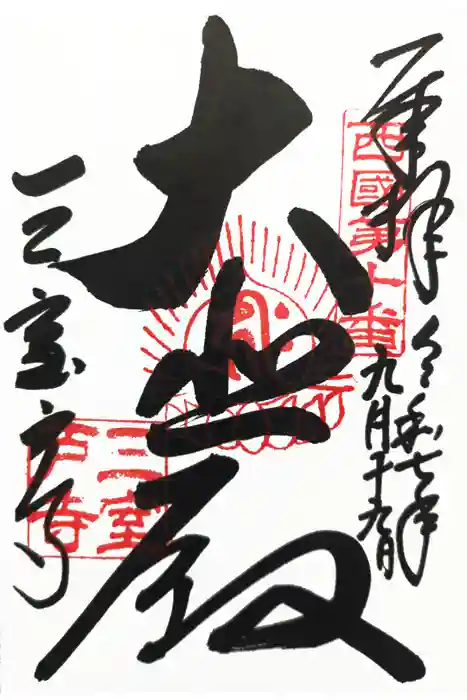 奉拝
西國第十番
令和七年
九月十九日
大悲殿
三室戸寺
三室
戸寺